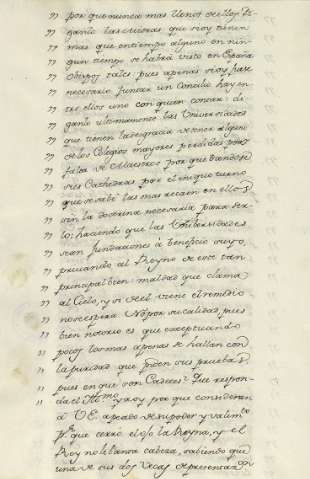 " por que nunca mas llenos de ellos. Di-
" ganlo las Iglesias que oy tienen
" mas que en tiempo alguno en nin-
" gun tiempo se habrà visto en España
" Obispos tales pues apenas si oy fuese
" necesario juntar un Concilio hay en-
" tre ellos uno con quien contar: di-
" ganlo ultimamente las Universidades
" que tienen la desgracia de tener alguno
" de los Colegios mayores perdidas por
" falta de Maestros por que dandose
" sus Cathedras por el iniquo turno
" que se sabe las mas recaen en ellos
" sin la doctrina necesaria para ser-
" lo; haciendo que las Universidades
" sean fundaciones à beneficio suyo,
" privando al Reyno de este tan
" principal bien: maldad que clama
" al Cielo, y si de el viene el remedio
" no se espera. No por su calidad pues
" bien notorio es que exceptuando
" pocos los mas apenas se hallan con
" la puridad que piden sus pruebas,
" pues en que son Caseres? Que respon-
" da el y à oy por que consideran
à V.E. apeado de su poder y valim.to
p.r que cerrò el ojo la Reyna, y el
Rey no lebanta cabeza, sabiendo que
una de sus dos Vecas